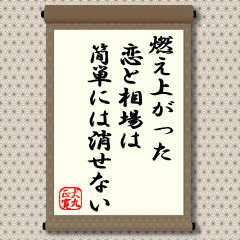 燃え上がった
恋と相場は
簡単には消せない
大丸
正富